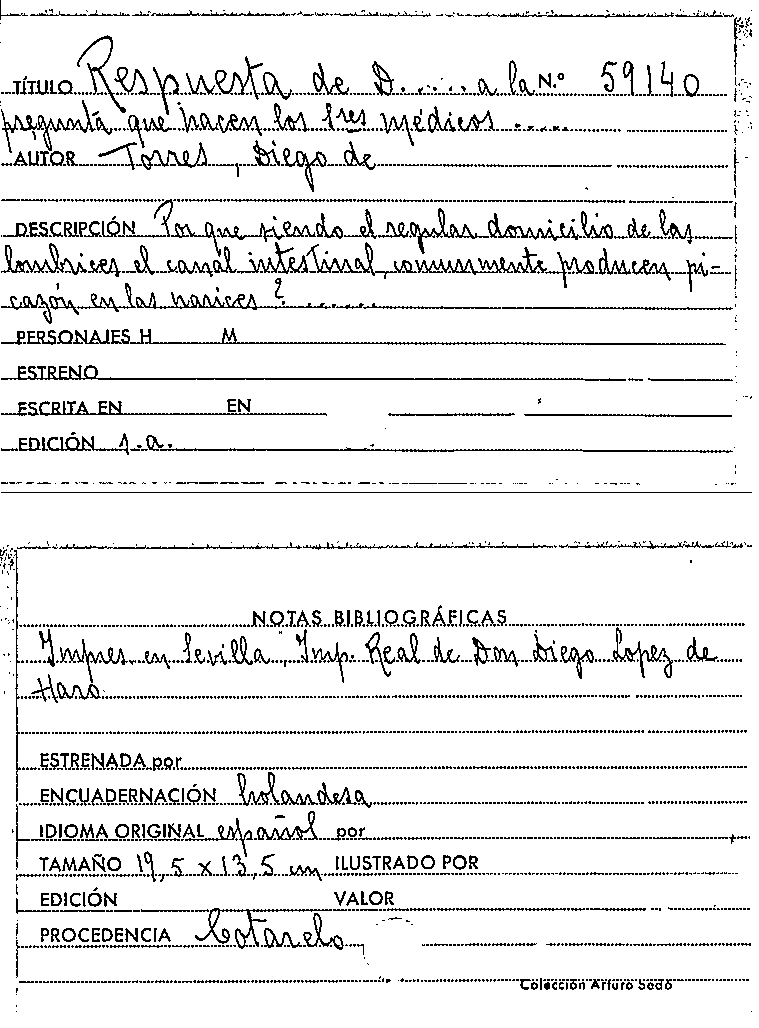 TÍTULO Respuesta de D...... a la N.º 59140
pregunta que hacen los tres médicos .....
AUTOR Torres, Diego de
DESCRIPCIÓN Por que siendo el regular domicilio de las
lombrices el canal intestinal, comunmente producen pi-
cazón en las narices? .......
PERSONAJES H M
ESTRENO
ESCRITA EN EN
EDICIÓN s.a.
NOTAS BIBLIOGRÁFICAS
Impres. en Sevilla, Imp. Real de Don Diego Lopez de
Haro
ESTRENADA por
ENCUADERNACIÓN holandesa
IDIOMA ORIGINAL español por
TAMAÑO 19,5 x 13,5 cm ILUSTRADO POR
EDICIÓN VALOR
PROCEDENCIA Cotarelo
Colección Arturo Sedó